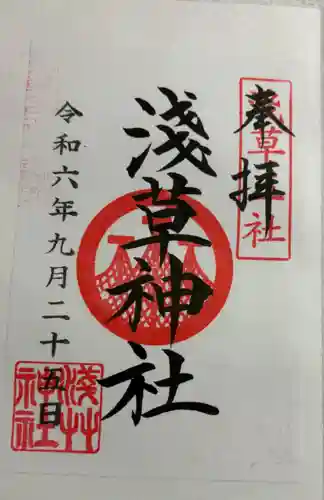 奉拝
浅草神社
淺草神社
令和六年九月二十五日
淺草神社